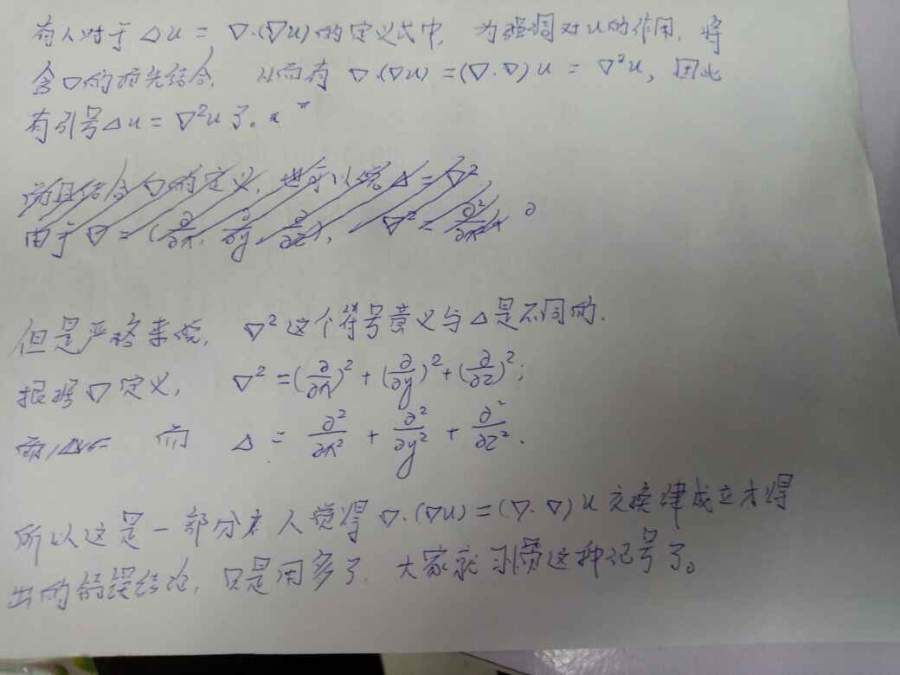 有人对于 Δu = ∇·(∇u) 的定义式中, 为强调对u的作用, 将
含∇的预先结合, 从而有 ∇·(∇u) = (∇·∇)u = ∇²u, 因此
有引号Δu = ∇²u了。
结合∇的定义, 也可以说 Δ = ∇²,
由于 ∇ = (∂/∂x, ∂/∂y, ∂/∂z), ∇² = ∂²/∂x² + ∂
但是严格来说, ∇²这个符号意义与Δ是不同的.
根据∇定义, ∇² = (∂/∂x)² + (∂/∂y)² + (∂/∂z)²;
而 Δ = ∂²/∂x² + ∂²/∂y² + ∂²/∂z².
所以这是一部分人觉得 ∇·(∇u) = (∇·∇)u 交换律成立才得
出的错误结论, 只是用多了, 大家就习惯这种记号了。